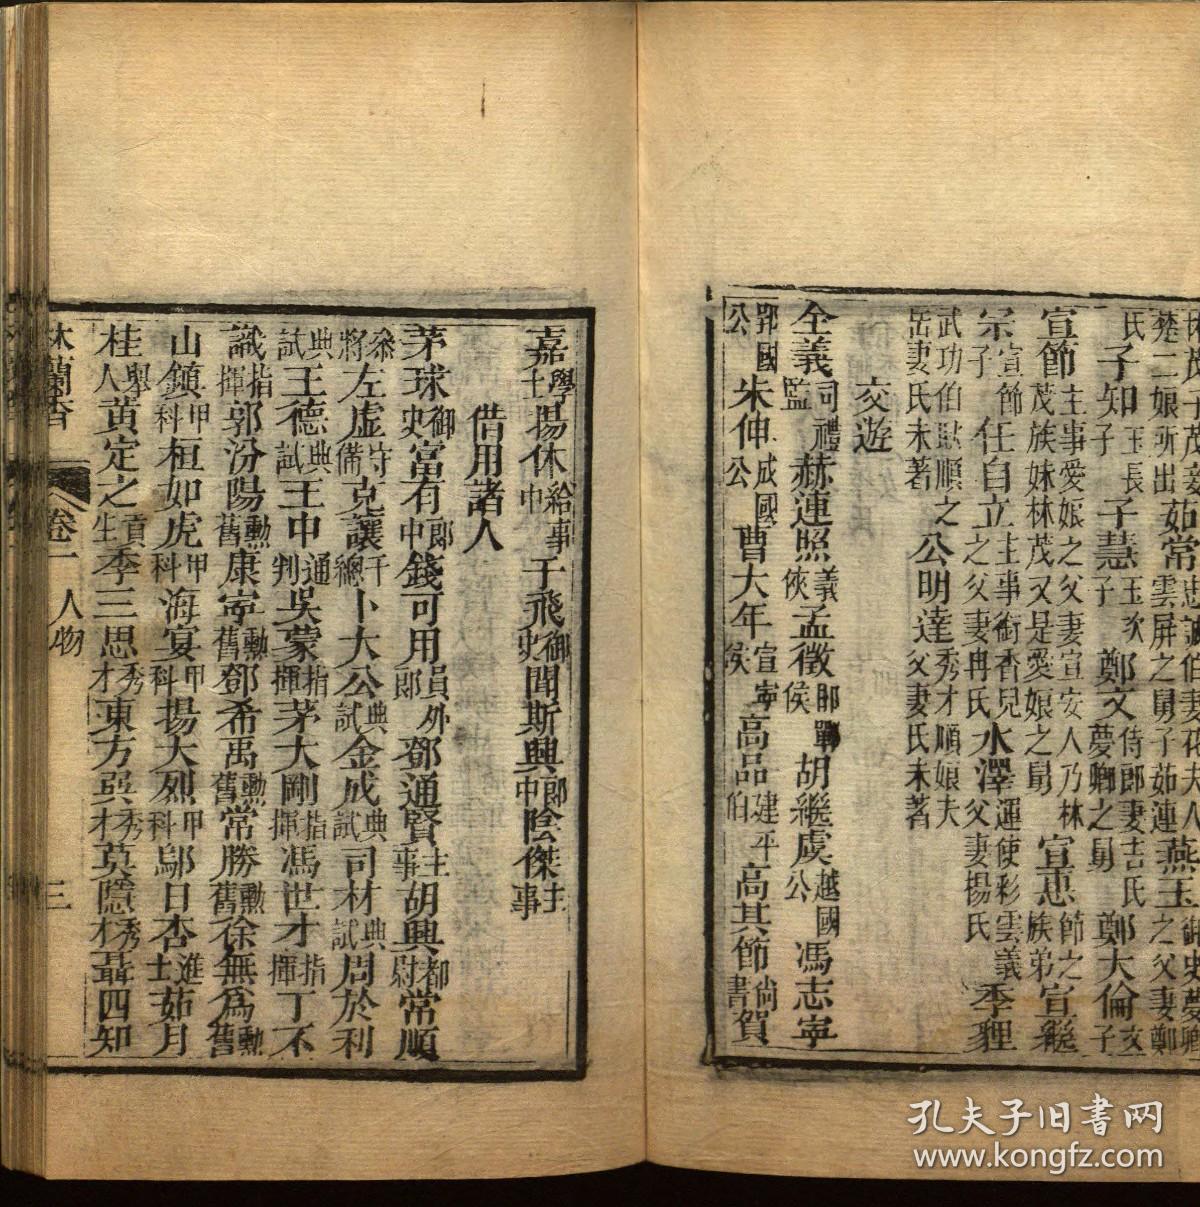 氏 子知子玉長 子慧子玉次 鄭文侍郎妻吉氏夢卿之舅 鄭大倫文子
宣節主事愛娘之父妻宣安人乃林茂族妹林茂又是愛娘之舅 宣惎節之族弟 宣繼
宗宣節子 任自立主事衖香兒之父妻冉氏 水澤運使彩雲義父妻揚氏 季貍
武功伯賦順之岳妻氏未著 公明達秀才順娘夫父妻氏未著
交遊
全義司禮監 赫連照義俠 孟徵郎戰侯 胡繼虞越國公 馮志寧
鄂國公 朱伸成國公 曹大年宣寧侯 高品建平伯 高其節尙書 賀
嘉學士 揚休給事中 于飛御史 聞斯興郎中 陰傑主事
借用諸人
茅球御史 富有郎中 錢可用員外郎 鄧通賢主事 胡興都尉 常順
叅將 左虚守備 克讓千總 卜大公典試 金成典試 司材典試 周於利
典試 王德典試 王中通判 吳蒙指揮 茅大剛指揮 馮世才指揮 丁不
識指揮 郭汾陽勳舊 康寧勳舊 鄧希禹勳舊 常勝勳舊 徐無爲勳舊
山鎮甲科 桓如虎甲科 海宴甲科 揚大烈甲科 鄔日杏進士 茹月
桂舉人 黃定之貢生 季三思秀才 東方巽秀才 莫隱秀才 聶四知
林蘭香 卷一 人物 三
孔夫子旧書网
www.kongfz.com